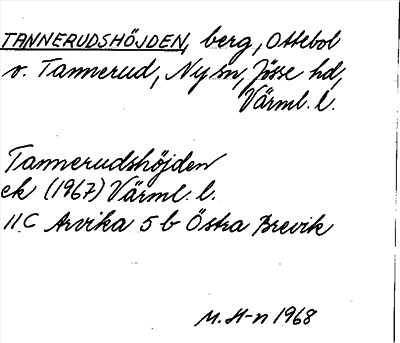 TANNERUDSHÖJDEN, berg, Ottebol
v. Tannerud, Ny sn, Jösse hd,
Värml. l.
Tannerudshöjden
ek (1967) Värml. l.
11C Arvika 5 b Östra Brevik
M. H-n 1968